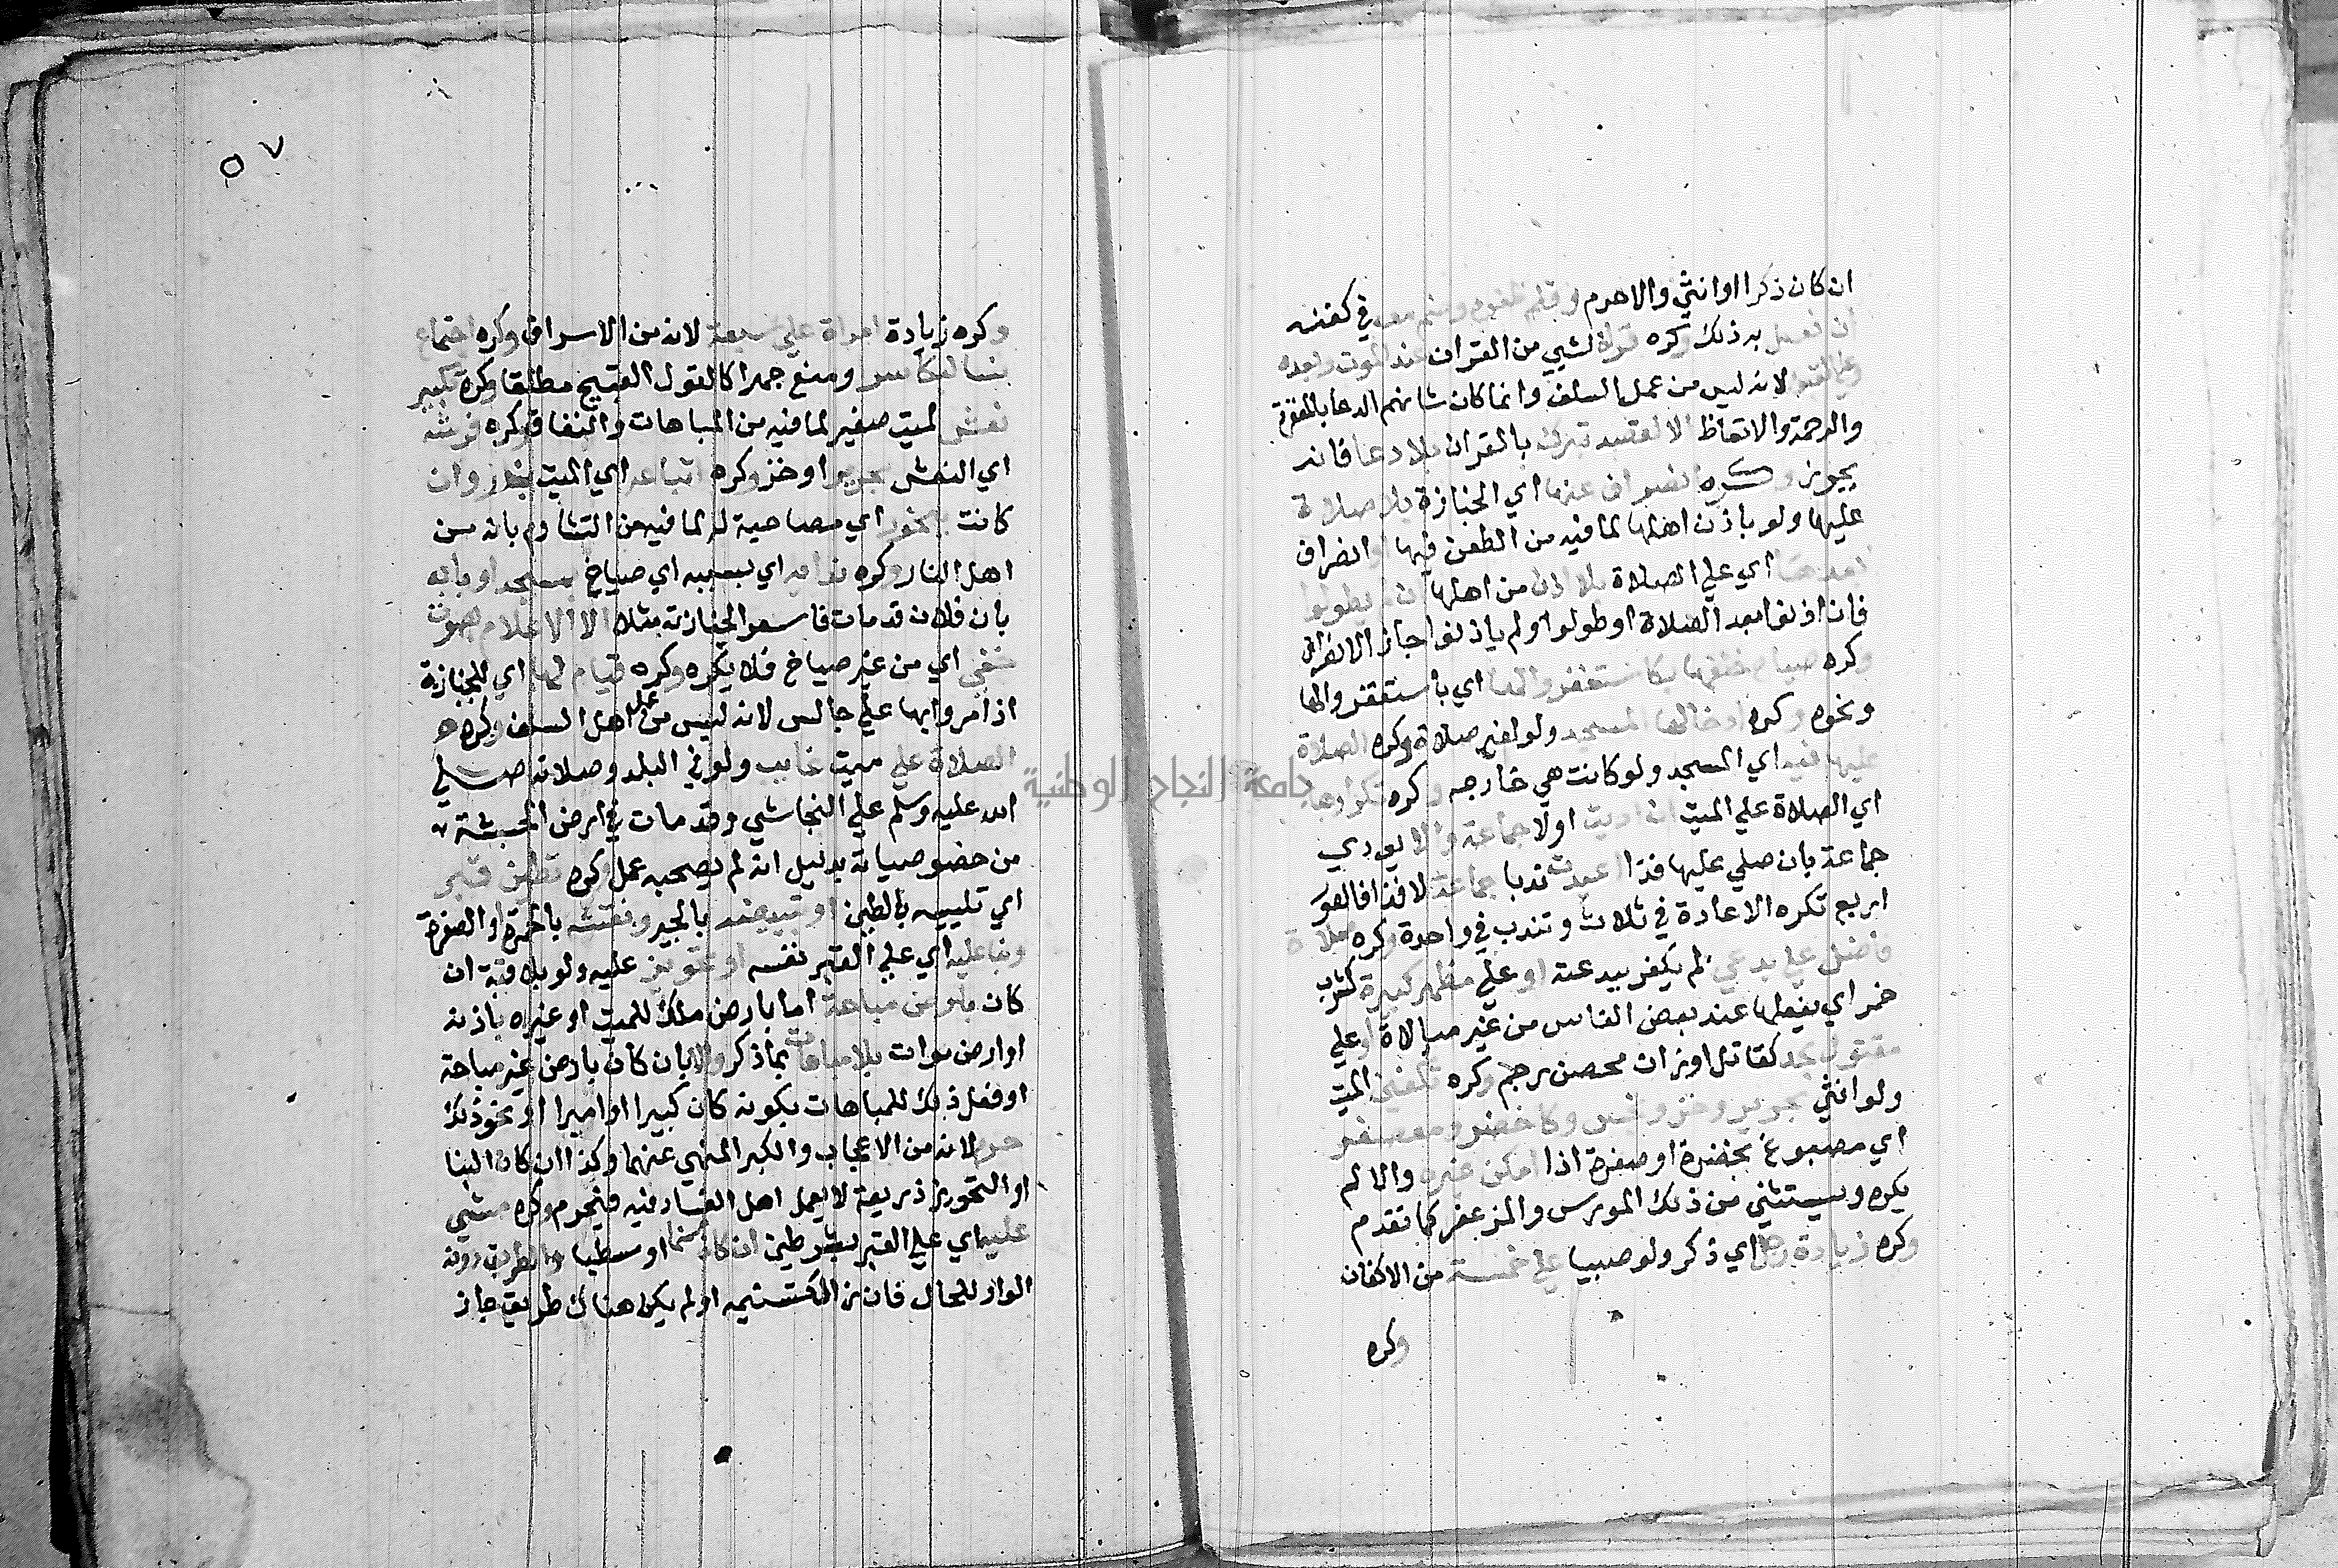 ان كان ذكرا او انثي والا حرم وقلم ظفره وضم معه في كفنه
ان فعل به ذلك وكره قراة لشيي من القران عند الموت وبعده
وعلي القبر لانه ليس من عمل السلف وانما كان شانهم الدعا بالمغفرة
والرحمة والاتعاظ الا لقصد تبرك بالقران بلا دعا فانه
يجوز وكره انصراف عنها اي الجنازة بلا صلاة
عليها ولو باذن اهلها لما فيه من الطعن فيها او انصراف
بعدها اي علي الصلاة بلا اذن من اهلها ان لم يطولوا
فان اذنوا بعد الصلاة او طولوا ولم ياذنوا جاز الانصراف
وكره صياح خلفها بكاستغفروا لها اي باستغفروا لها
ونحوه وكره ادخالها المسجد ولو لغير صلاة وكره الصلاة
عليها فيه اي المسجد ولو كانت هي خارجه وكره تكرارها
اي الصلاة علي الميت ان اديت اولا جماعة والا يودي
جماعة بان صلي عليها فذا اعيدت ندبا جماعة لا فذا فالصور
اربع تكره الاعادة في ثلاث وتندب في واحدة وكره صلاة
فاضل علي بدعي لم يكفر ببدعته او علي مظهر كبيرة كشرب
خمر اي يفعلها عند بعض الناس من غير مبالاة او علي
مقتول بحد كقاتل او زان محصن رجم وكره تكفين الميت
ولو انثي بحرير وخز ونجس وكاخضر ومعصفر
اي مصبوغ بخضرة او صفرة اذا امكن غيره والا لم
يكره ويستثني من ذلك المورس والمزعفر كما تقدم
وكره زيادة رجل اي ذكر ولو صبيا علي خمسة من الاكفان
وكره
٥٧
وكره زيادة امراة علي سبعة لانه من الاسراف وكره اجتماع
نسا لبكا سر ومنع جهرا كالقول القبيح مطلقا وكره تكبير
نعش لميت صغير لما فيه من المباهات والنفاق وكره فرشه
اي النعش بحرير او خز وكره اتباعه اي الميت بنار وان
كانت ببخور اي مصاحبة له لما فيه من التشاوم بانه من
اهل النار وكره ندا به اي بسببه اي صياح بمسجد او بابه
بان فلان قد مات فاسعوا لجنازته مثلا الا الاعلام بصوت
خفي اي من غير صياح فلا يكره وكره قيام لها اي للجنازة
اذا مروا بها علي جالس لانه ليس من عمل اهل السلف وكره
الصلاة علي ميت غايب ولو في البلد وصلاته صلي
الله عليه وسلم علي النجاشي وقد مات في ارض الحبشة
من خصوصياته بدليل انه لم يصحبه عمل وكره تطيين قبر
اي تلييسه بالطين او تبييضه بالجير ونقشه بالحمرة او الصفرة
وبنا عليه اي علي القبر نفسه او تحويز عليه ولو بلا قبة ان
كان بارض مباحة اما بارض ملك للميت او غيره باذنه
او ارض موات بلا مباهات بما ذكر والا بان كان بارض غير مباحة
او فعل ذلك للمباهات بكونه كان كبيرا او اميرا او نحو ذلك
حرم لانه من الاعجاب والكبر المنهي عنهما وكذا ان كان البنا
او التحويز ذريعة لا يعمل اهل الفساد فيه فيحرم وكره مشي
عليه اي علي القبر بشرطين ان كان مسنما او مسطبا والطريق دونه
الواو للحال فان زال تسنيمه او لم يكن هناك طريق جاز
جامعة النجاح الوطنية